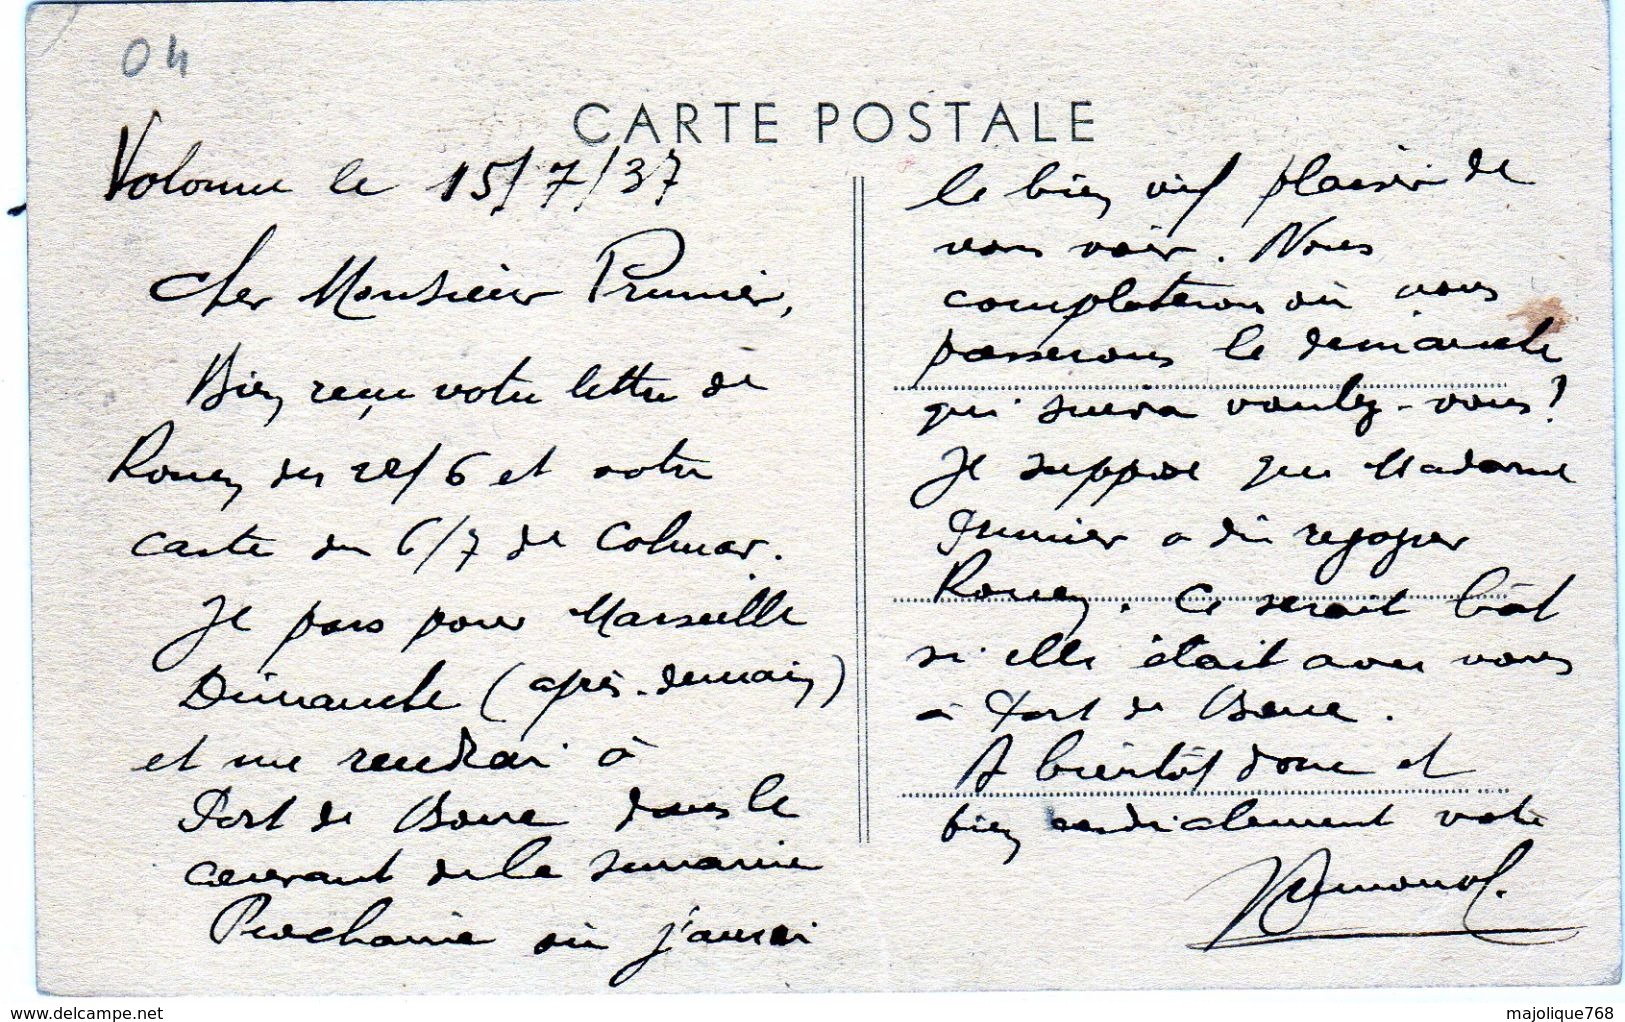 04
CARTE POSTALE
Volonne le 15/7/37
Cher Monsieur Prunier,
Bien reçu votre lettre de
Rouen du 28/6 et votre
carte du 6/7 de Colmar.
Je pars pour Marseille
Dimanche (après-demain)
et me rendrai à
Port de Bouc dans le
courant de la semaine
Prochaine où j'aurai
le bien vif plaisir de
vous voir. Nous
complèterons où nous
passerons le dimanche
qui suivra voulez-vous?
Je suppose que Madame
Prunier a dû regagner
Rouen. Ce serait bât
si elle était avec vous
à Port de Bouc.
A bientôt donc et
bien cordialement votre
delcampe.net
majolique768